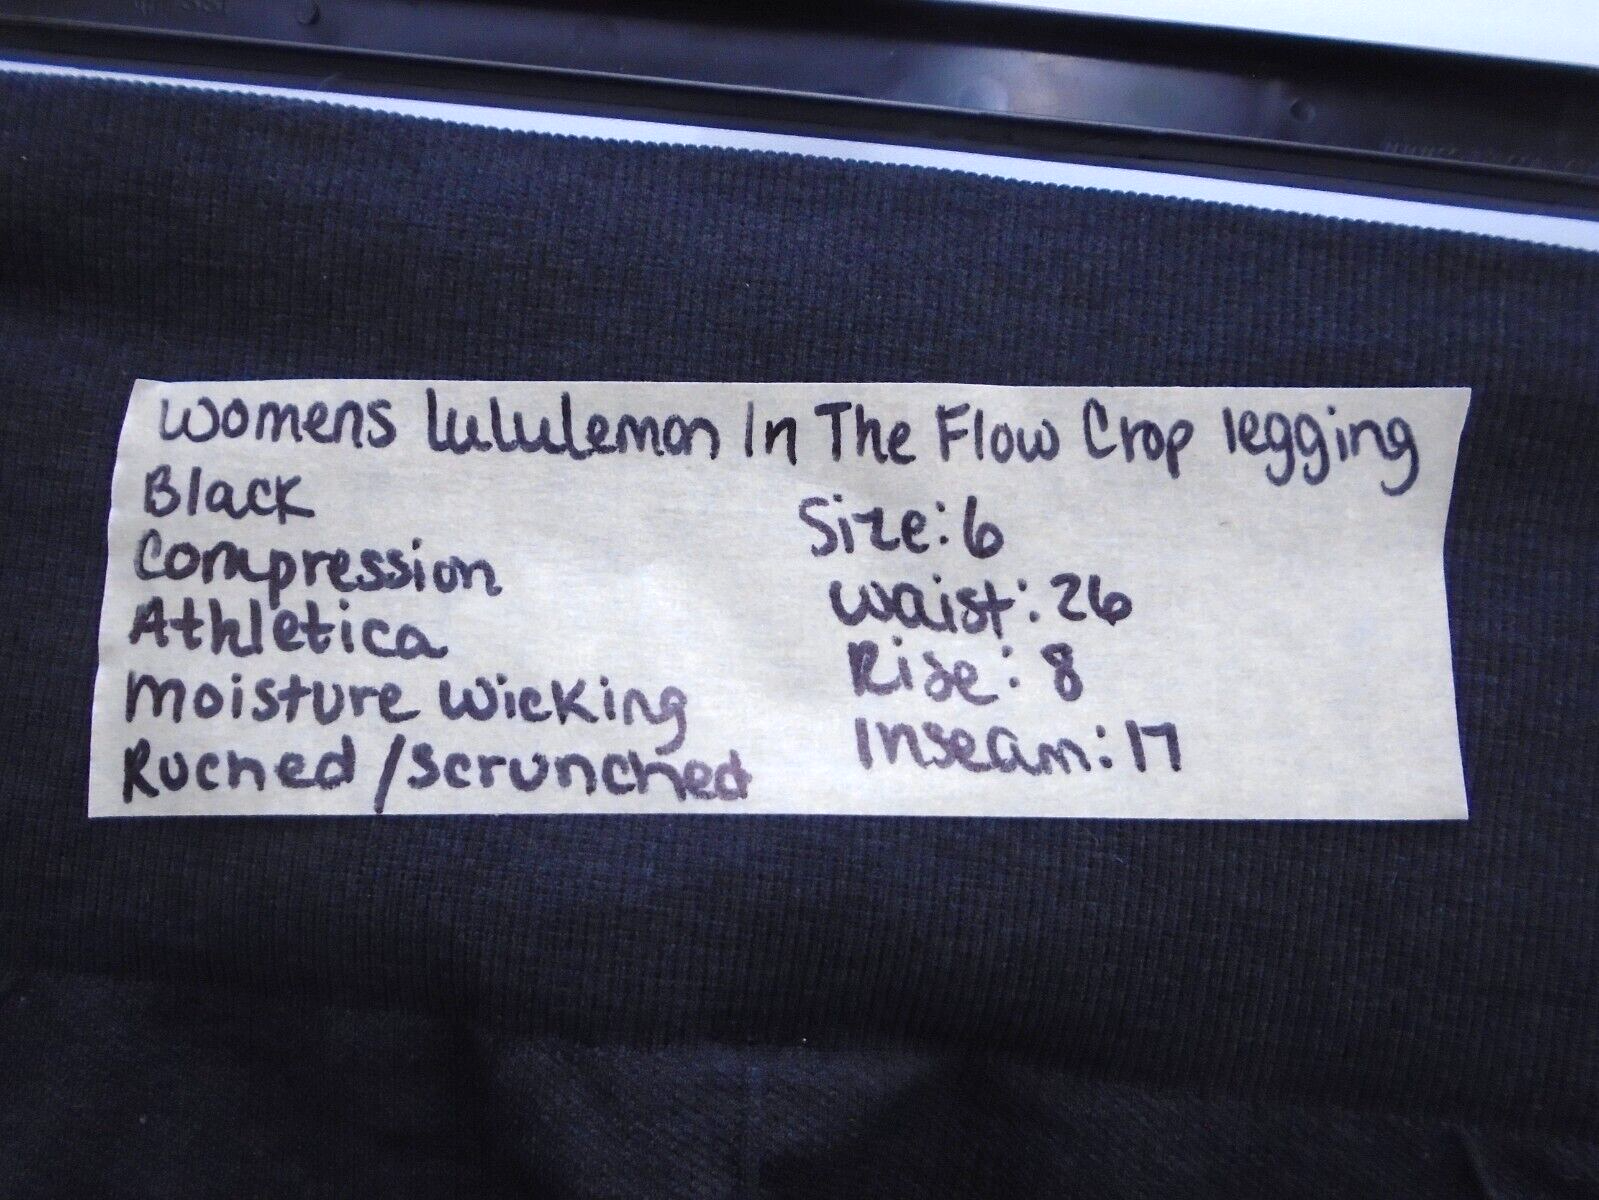 Womens lululemon In The Flow Crop legging
Black
Compression
Athletica
Moisture Wicking
Ruched / Scrunched
Size: 6
Waist: 26
Rise: 8
Inseam: 17